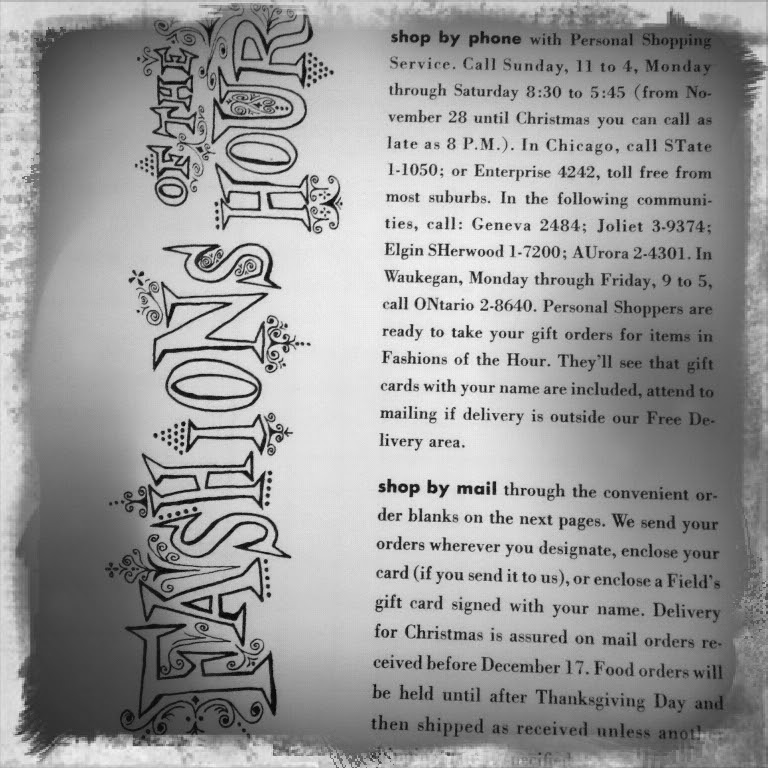 FASHIONS
OF THE
HOUR
shop by phone with Personal Shopping
Service. Call Sunday, 11 to 4, Monday
through Saturday 8:30 to 5:45 (from No-
vember 28 until Christmas you can call as
late as 8 P.M.). In Chicago, call STate
1-1050; or Enterprise 4242, toll free from
most suburbs. In the following communi-
ties, call: Geneva 2484; Joliet 3-9374;
Elgin SHerwood 1-7200; AUrora 2-4301. In
Waukegan, Monday through Friday, 9 to 5,
call ONtario 2-8640. Personal Shoppers are
ready to take your gift orders for items in
Fashions of the Hour. They'll see that gift
cards with your name are included, attend to
mailing if delivery is outside our Free De-
livery area.
shop by mail through the convenient or-
der blanks on the next pages. We send your
orders wherever you designate, enclose your
card (if you send it to us), or enclose a Field's
gift card signed with your name. Delivery
for Christmas is assured on mail orders re-
ceived before December 17. Food orders will
be held until after Thanksgiving Day and
then shipped as received unless